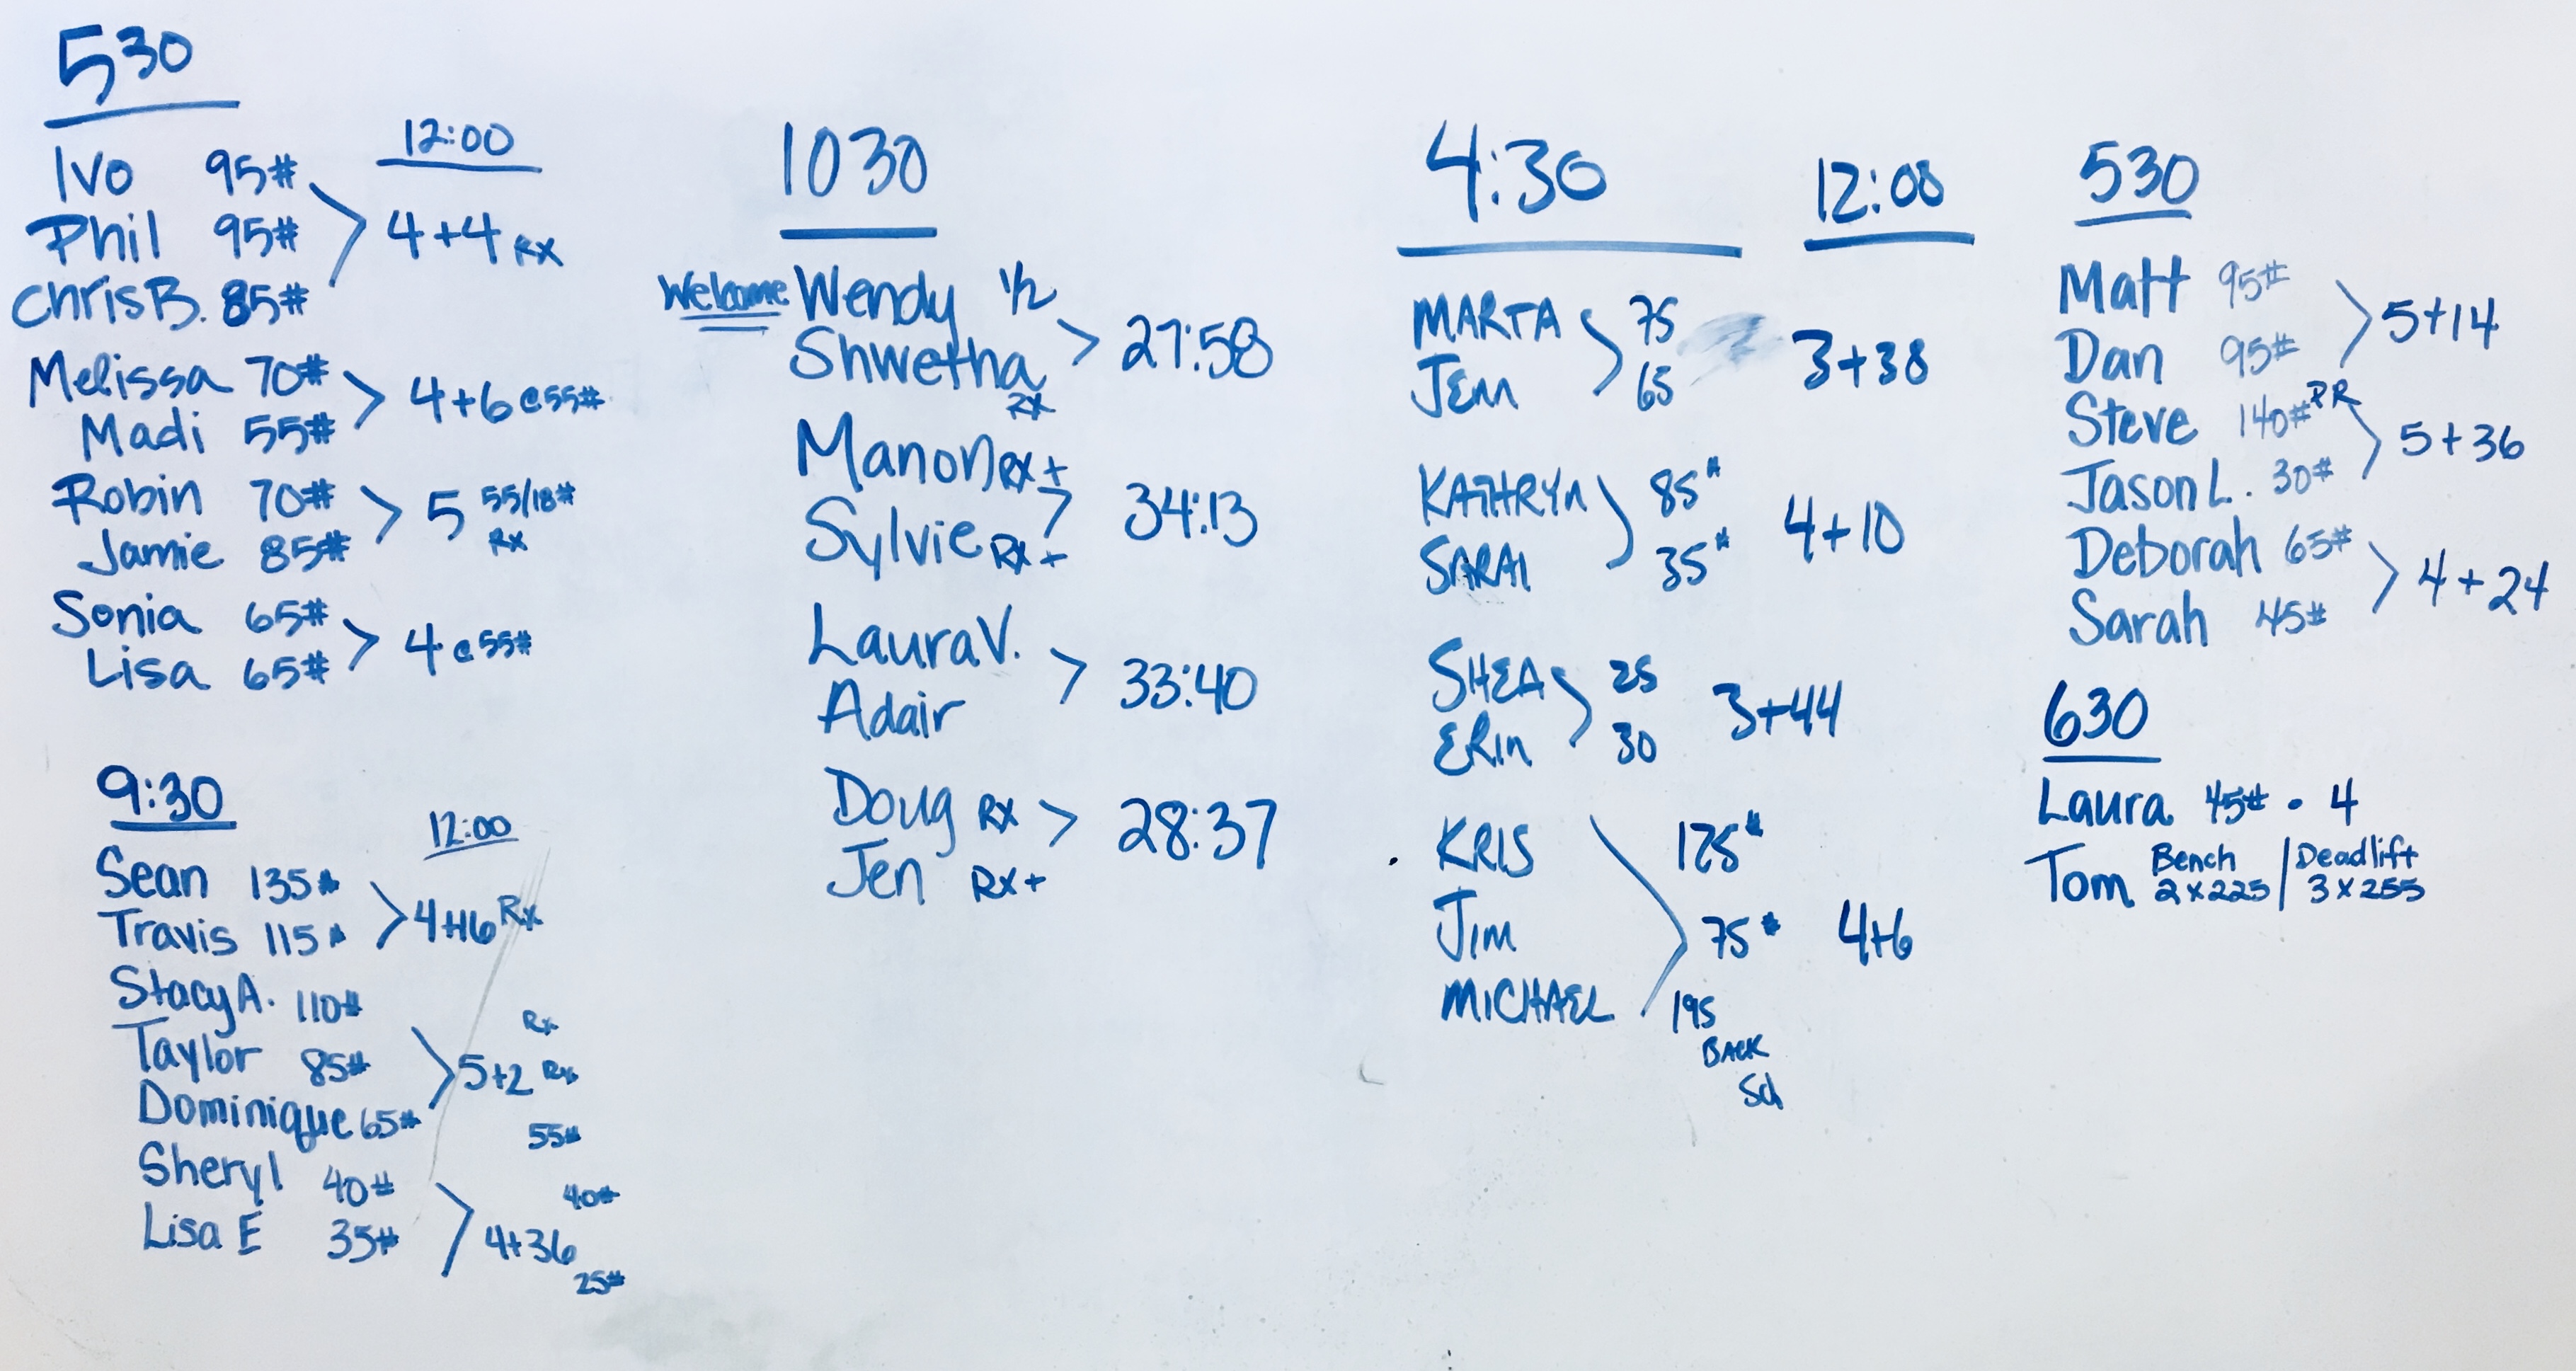 530
12:00
Ivo 95#
Phil 95#
Chris B. 85#
4+4 RX
Melissa 70#
Madi 55#
4+6 @55#
Robin 70#
Jamie 85#
5 55/18#
Rx
Sonia 65#
Lisa 65#
4 @55#
9:30
12:00
Sean 135#
Travis 115#
4+16 Rx
Stacy A. 110#
Taylor 85#
Dominique 65#
Rx
5+2 Rx
55#
Sheryl 40#
Lisa E 35#
40#
4+36
25#
1030
Welcome Wendy 1/2
Shwetha
RX
27:58
Manon RX+
Sylvie RX+
34:13
Laura V.
Adair
33:40
Doug RX
Jen RX+
28:37
4:30
12:00
MARTA 75
JENN 65
3+38
KATHRYN 85#
SARAI 35#
4+10
SHEA 25
ERIN 30
3+44
KRIS 125#
JIM 75#
MICHAEL 195
BACK
4+6
530
Matt 95#
Dan 95#
5+14
Steve 140# PR
Jason L. 30#
5+36
Deborah 65#
Sarah 45#
4+24
630
Laura 45# • 4
Tom Bench 2x225 / Deadlift 3x255